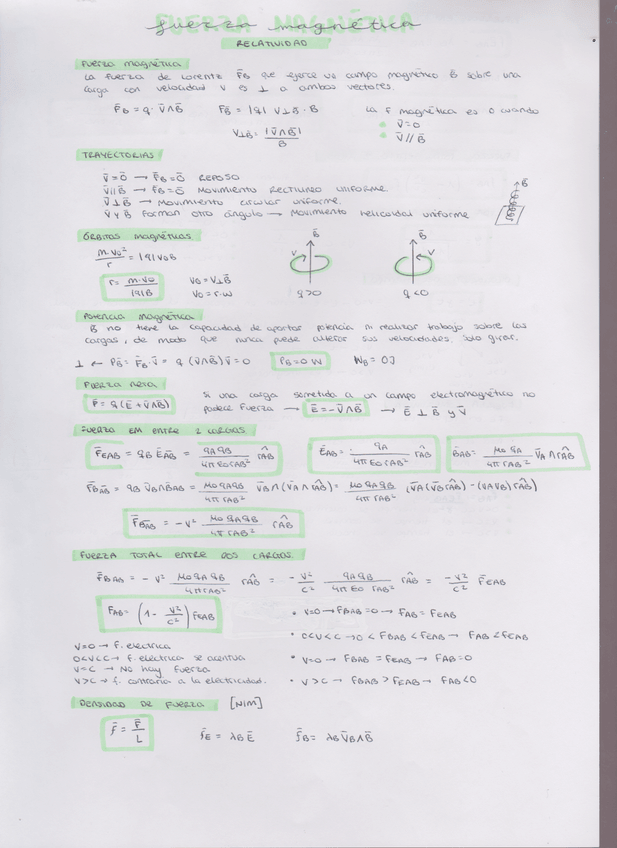 fuerza magnética
RELATIVIDAD
Fuerza magnética
La fuerza de Lorentz F̄B que ejerce un campo magnético B̄ sobre una
carga con velocidad v es ⊥ a ambos vectores.
F̄B = q · v̄∧B̄ FB = |q| v⊥B · B La F magnética es 0 cuando
v⊥B = |v̄∧B̄| / B v̄=0
v̄//B̄
TRAYECTORIAS
v̄=0̄ → F̄B=0̄ REPOSO
v̄//B̄ → F̄B=0̄ MOVIMIENTO RECTILINEO UNIFORME.
v̄⊥B̄ → MOVIMIENTO CIRCULAR UNIFORME.
v̄ y B̄ FORMAN OTRO ÁNGULO → MOVIMIENTO HELICOIDAL UNIFORME
B̄
ÓRBITAS MAGNÉTICAS.
m·v0² / r = |q|v0B
r = m·v0 / |q|B v0 = v⊥B̄
v0 = r·ω
B̄ v q>0
B̄ v q<0
POTENCIA MAGNÉTICA
B̄ no tiene la capacidad de aportar potencia ni realizar trabajo sobre las
cargas, de modo que nunca puede alterar sus velocidades. Solo girar.
⊥ ← PB̄ = F̄B·v̄ = q (v̄∧B̄)v̄=0 PB=0 W WB = 0J
FUERZA NETA
Si una carga sometida a un campo electromagnético no
F̄ = q(Ē+v̄∧B̄) padece fuerza → Ē=-v̄∧B̄ → Ē ⊥ B̄ y v̄
FUERZA EM ENTRE 2 CARGAS
F̄EAB = qB ĒAB = qAqB / 4πε0rAB² r̂AB ĒAB = qA / 4πε0rAB² r̂AB B̄AB = μ0 qA / 4π rAB² v̄A∧r̂AB
F̄BAB = qB v̄B∧B̄AB = μ0qAqB / 4π rAB² v̄B∧(v̄A∧r̂AB) = μ0qAqB / 4π rAB² (v̄A(v̄Br̂AB)-(vAvB)r̂AB)
F̄BAB = -v² μ0qAqB / 4π rAB² r̂AB
FUERZA TOTAL ENTRE DOS CARGAS.
F̄BAB = -v² μ0qAqB / 4πrAB² r̂AB = -v²/c² qAqB / 4πε0 rAB² r̂AB = -v²/c² F̄EAB
F̄AB = (1 - v²/c²) F̄EAB
• v=0 → FBAB=0 → FAB = FEAB
• 0<v<c → 0 < FBAB < FEAB → FAB < FEAB
v=0 → f. eléctrica
0<v<c → f. eléctrica se acentua
v=c → No hay fuerza
v>c → f. contraria a la electricidad.
• v=0 → FBAB = FEAB → FAB=0
• v>c → FBAB > FEAB → FAB<0
DENSIDAD DE FUERZA [N/M]
f̄ = F̄ / L f̄E = λB Ē f̄B = λB v̄B∧B̄